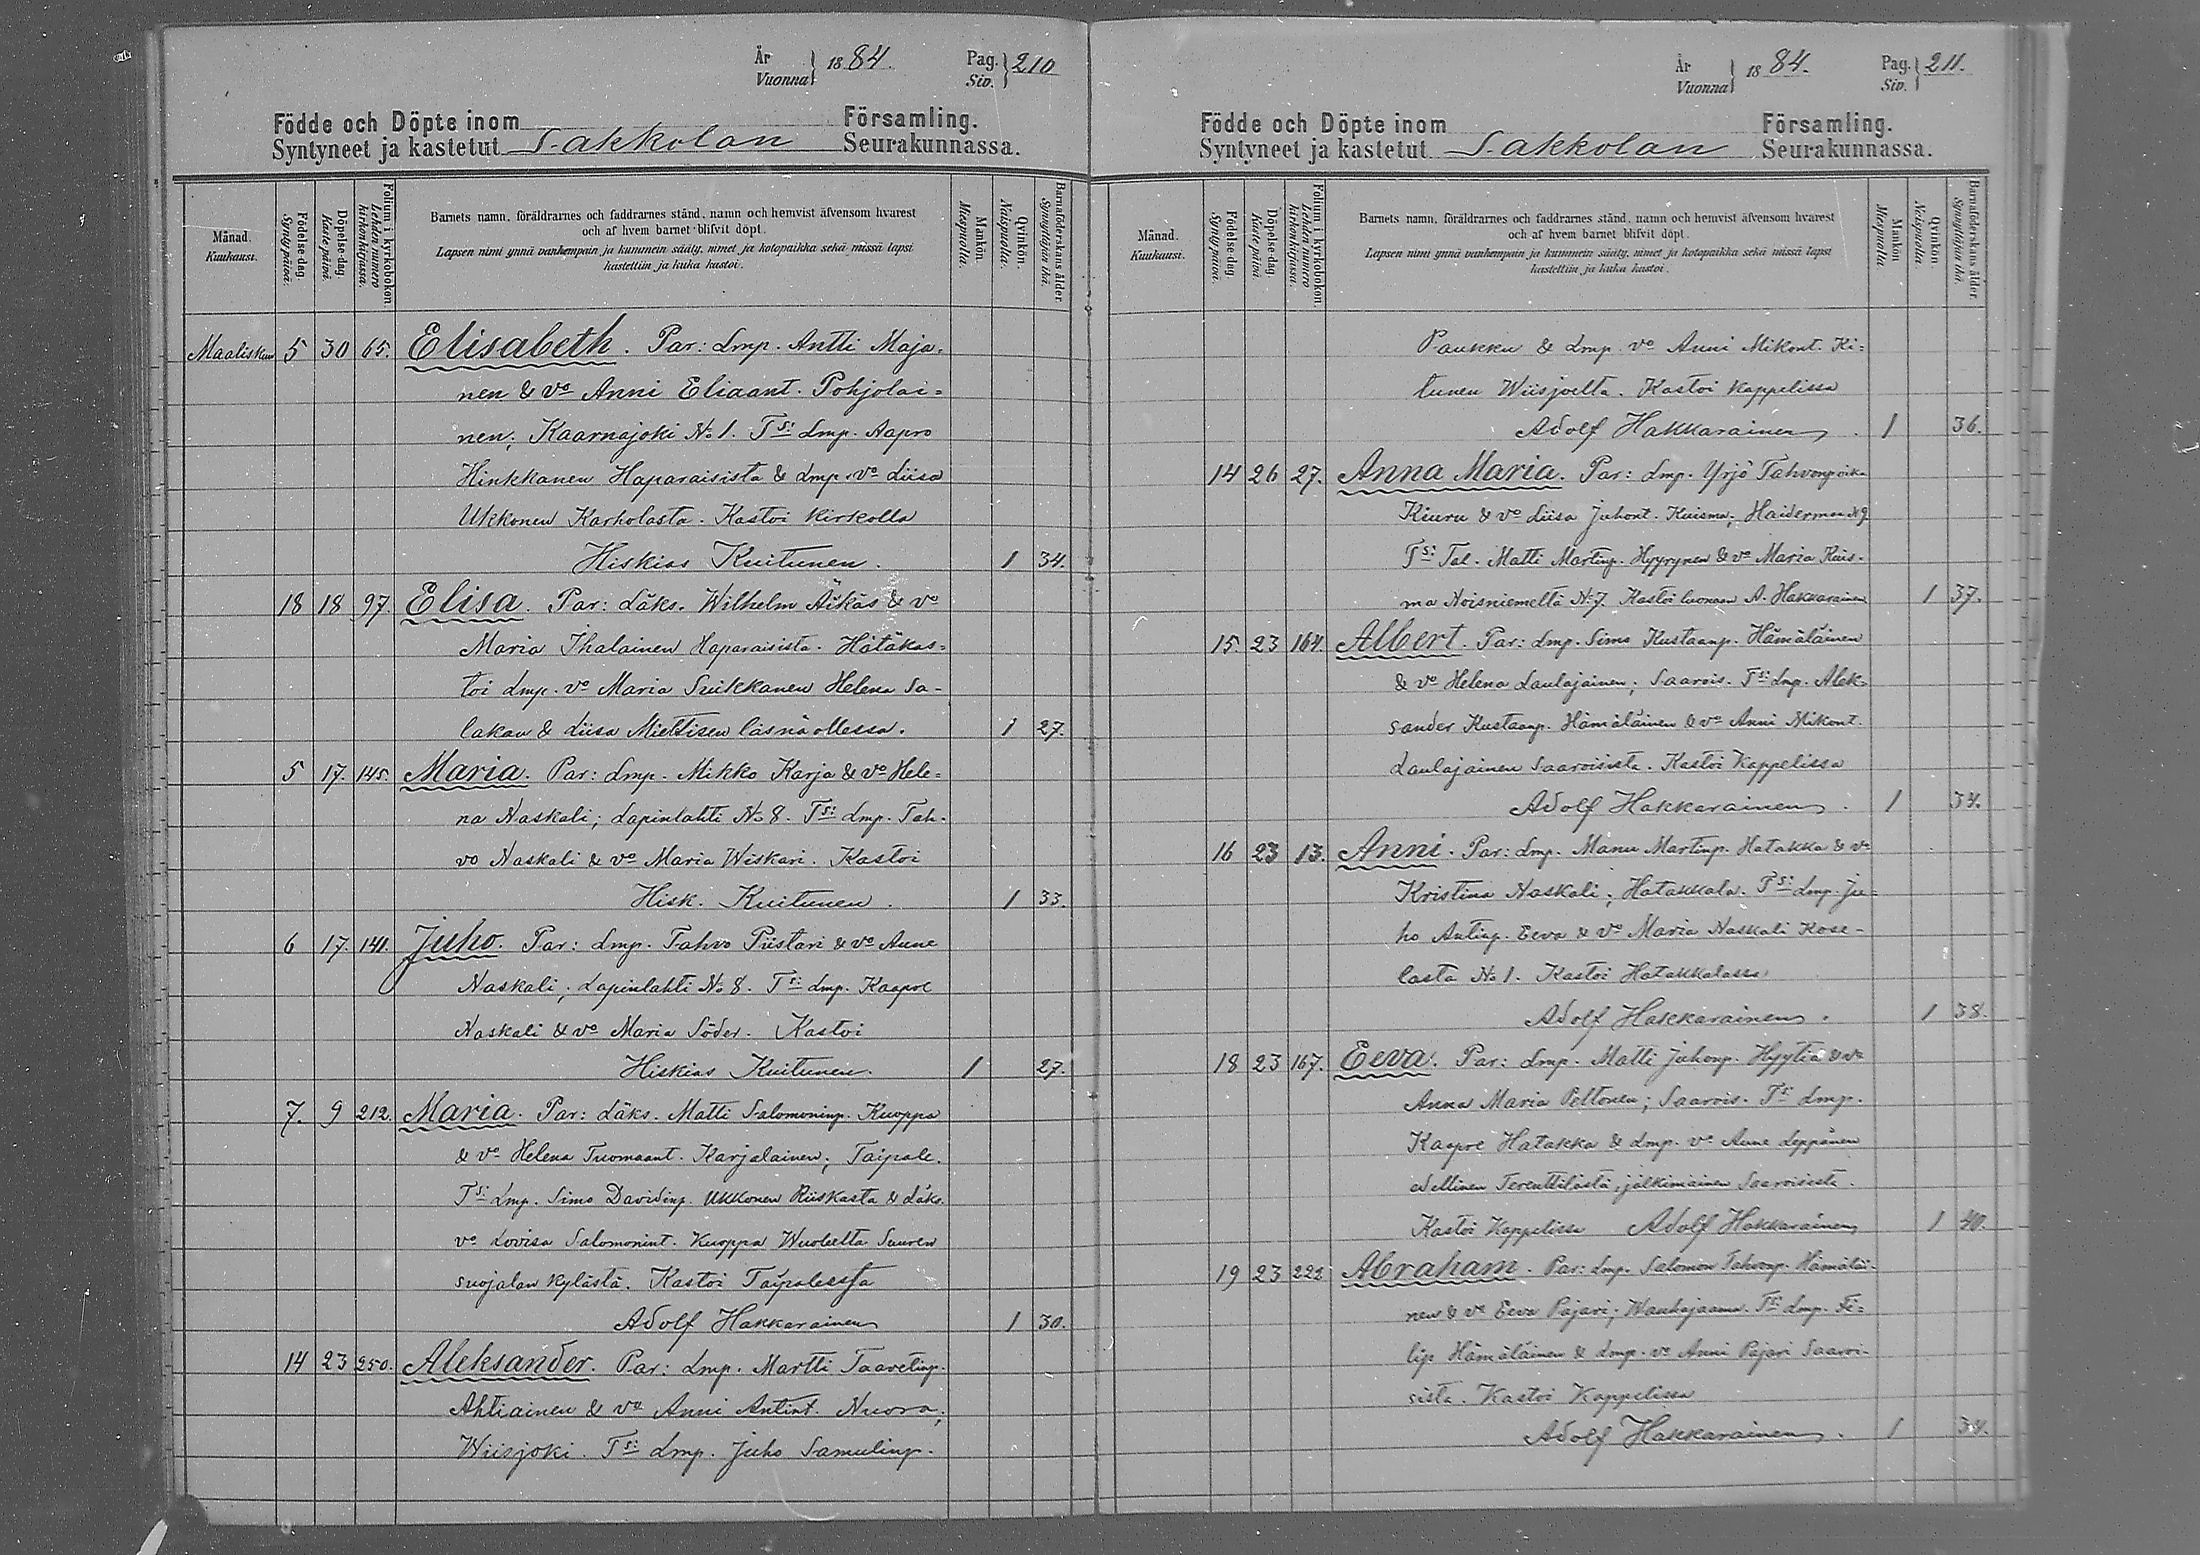 År Vuonna } 1884. Pag. Siv. } 210
Födde och Döpte inom Församling.
Syntyneet ja kastetut Sakkolan Seurakunnassa.
Månad. Kuukausi. Födelse-dag. Syntypäivä. Döpelse-dag. Kastepäivä. Folium i kyrkobokon. Lehden numero kirkonkirjassa.
Barnets namn, föräldrarnes och faddrarnes stånd, namn och hemvist äfvensom hvarest
och af hvem barnet blifvit döpt.
Lapsen nimi ynnä vanhempain ja kummein sääty, nimet ja kotopaikka sekä missä lapsi
kastettiin ja kuka kastoi.
Mankön. Miespuolia. Qvinkön. Naispuolia. Barnaföderskans ålder. Synnyttäjän ikä.
Maaliskuu 5 30 65. Elisabeth. Par: Lmp. Antti Maja=
nen & vo Anni Eliaant. Pohjolai=
nen; Kaarnajoki No 1. Tsi Lmp. Aapro
Hinkkanen Haparaisista & Lmp. vo Liisa
Ukkonen Karholasta. Kastoi Kirkolla
Hiskias Kuitunen. 1 34.
18 18 97. Elisa. Par: Läks. Wilhelm Äikäs & vo
Maria Ihalainen Haparaisista. Hätäkas=
toi Lmp. vo Maria Suikkanen Helena Sa-
lakan & Liisa Miettisen läsnäollessa. 1 27.
5 17. 145. Maria. Par: Lmp. Mikko Karja & vo Hele=
na Naskali; Lapinlahti No 8. Tsi Lmp. Tah-
vo Naskali & vo Maria Wiskari. Kastoi
Hisk. Kuitunen. 1 33.
6 17. 141. Juho. Par: Lmp. Tahvo Piistari & vo Anne
Naskali; Lapinlahti No 8. Tsi Lmp. Kaapre
Naskali & vo Maria Söder. Kastoi
Hiskias Kuitunen. 1 27.
7. 9 212. Maria. Par: Läks. Matti Salomoninp. Kuoppa
& vo Helena Tuomaant. Karjalainen; Taipale.
Tsi Lmp. Simo Davidinp. Ukkonen Riiskasta & Läks.
vo Lovisa Salomonint. Kuoppa Suuren
suojalan kylästä. Kastoi Taipaleessa
Adolf Hakkarainen 1 30.
14 23 250. Aleksander. Par: Lmp. Martti Taavetinp.
Ahtiainen & vo Anni Antint. Nuora;
Wiisjoki. Tsi Lmp. Juho Samulinp.
År Vuonna } 1884. Pag. Siv. } 211.
Födde och Döpte inom Församling.
Syntyneet ja kastetut Sakkolan Seurakunnassa.
Månad. Kuukausi. Födelse-dag. Syntypäivä. Döpelse-dag. Kastepäivä. Folium i kyrkobokon. Lehden numero kirkonkirjassa.
Barnets namn, föräldrarnes och faddrarnes stånd, namn och hemvist äfvensom hvarest
och af hvem barnet blifvit döpt.
Lapsen nimi ynnä vanhempain ja kummein sääty, nimet ja kotopaikka sekä missä lapsi
kastettiin ja kuka kastoi.
Mankön. Miespuolia. Qvinkön. Naispuolia. Barnaföderskans ålder. Synnyttäjän ikä.
Paukku & Lmp. vo Anni Mikont. Ki=
tunen Wiisjoelta. Kastoi Kappelissa
Adolf Hakkarainen. 1 36.
14 26 27. Anna Maria. Par: Lmp. Yrjö Tahvonpoika
Kiuru & vo Liisa Juhont. Kuisma; Haidermaa No 9
Tsi Tal. Matti Martinp. Hyyrynen & vo Maria Kuis-
ma Noisniemeltä No 7. Kastoi luonaan A. Hakkarainen 1 37.
15. 23 164. Albert. Par: Lmp. Simo Kustaanp. Hämäläinen
& vo Helena Laulajainen; Saarois. Tsi Lmp. Alek-
sander Kustaanp. Hämäläinen & vo Anni Mikont.
Laulajainen Saaroisista. Kastoi Kappelissa
Adolf Hakkarainen. 1 34.
16 23 13. Anni. Par: Lmp. Manu Martinp. Hatakka & vo
Kristina Naskali; Hatakkala. Tsi Lmp. Ju=
ho Antinp. Eeva & vo Maria Naskali Kose-
lasta No 1. Kastoi Hatakkalassa
Adolf Hakkarainen. 1 38.
18 23 167. Eeva. Par: Lmp. Matti Juhonp. Hyytiä & vo
Anna Maria Peltonen; Saarois. Tsi Lmp.
Kaapre Hatakka & Lmp. vo Anne Leppänen
edellinen Terenttilästä, jälkimäinen Saaroisista.
Kastoi Kappelissa Adolf Hakkarainen 1 40.
19 23 222 Abraham. Par: Lmp. Salomon Tahvonp. Hämäläi-
nen & vo Eeva Pajari; Wanhajaama. Tsi Lmp. Fi=
lip Hämäläinen & Lmp. vo Anni Pajari Saaroi-
sista. Kastoi Kappelissa
Adolf Hakkarainen. 1 34.